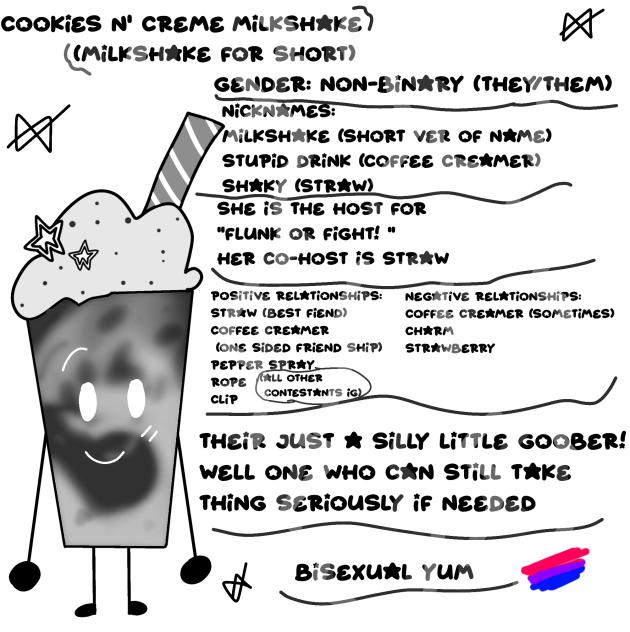 COOKiES N' CREME MiLKSHAKE
(MiLKSHAKE FOR SHORT)
GENDER: NON-BiNARY (THEY/THEM)
NiCKNAMES:
MiLKSHAKE (SHORT VER OF NAME)
STUPiD DRiNK (COFFEE CREAMER)
SHAKY (STRAW)
SHE iS THE HOST FOR
"FLUNK OR FiGHT! "
HER CO-HOST iS STRAW
POSiTiVE RELATiONSHiPS:
STRAW (BEST FiEND)
COFFEE CREAMER
(ONE SiDED FRiEND SHiP)
PEPPER SPRAY
ROPE (ALL OTHER
CLiP CONTESTANTS iG)
NEGATiVE RELATiONSHiPS:
COFFEE CREAMER (SOMETiMES)
CHARM
STRAWBERRY
THEiR JUST A SiLLY LiTTLE GOOBER!
WELL ONE WHO CAN STiLL TAKE
THiNG SERiOUSLY iF NEEDED
BiSEXUAL YUM